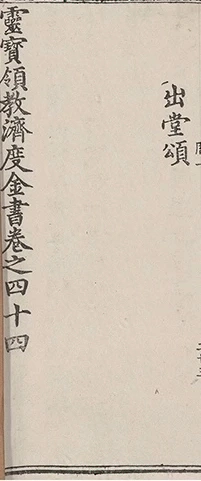 出堂頌
靈寶領教濟度金書卷之四十四